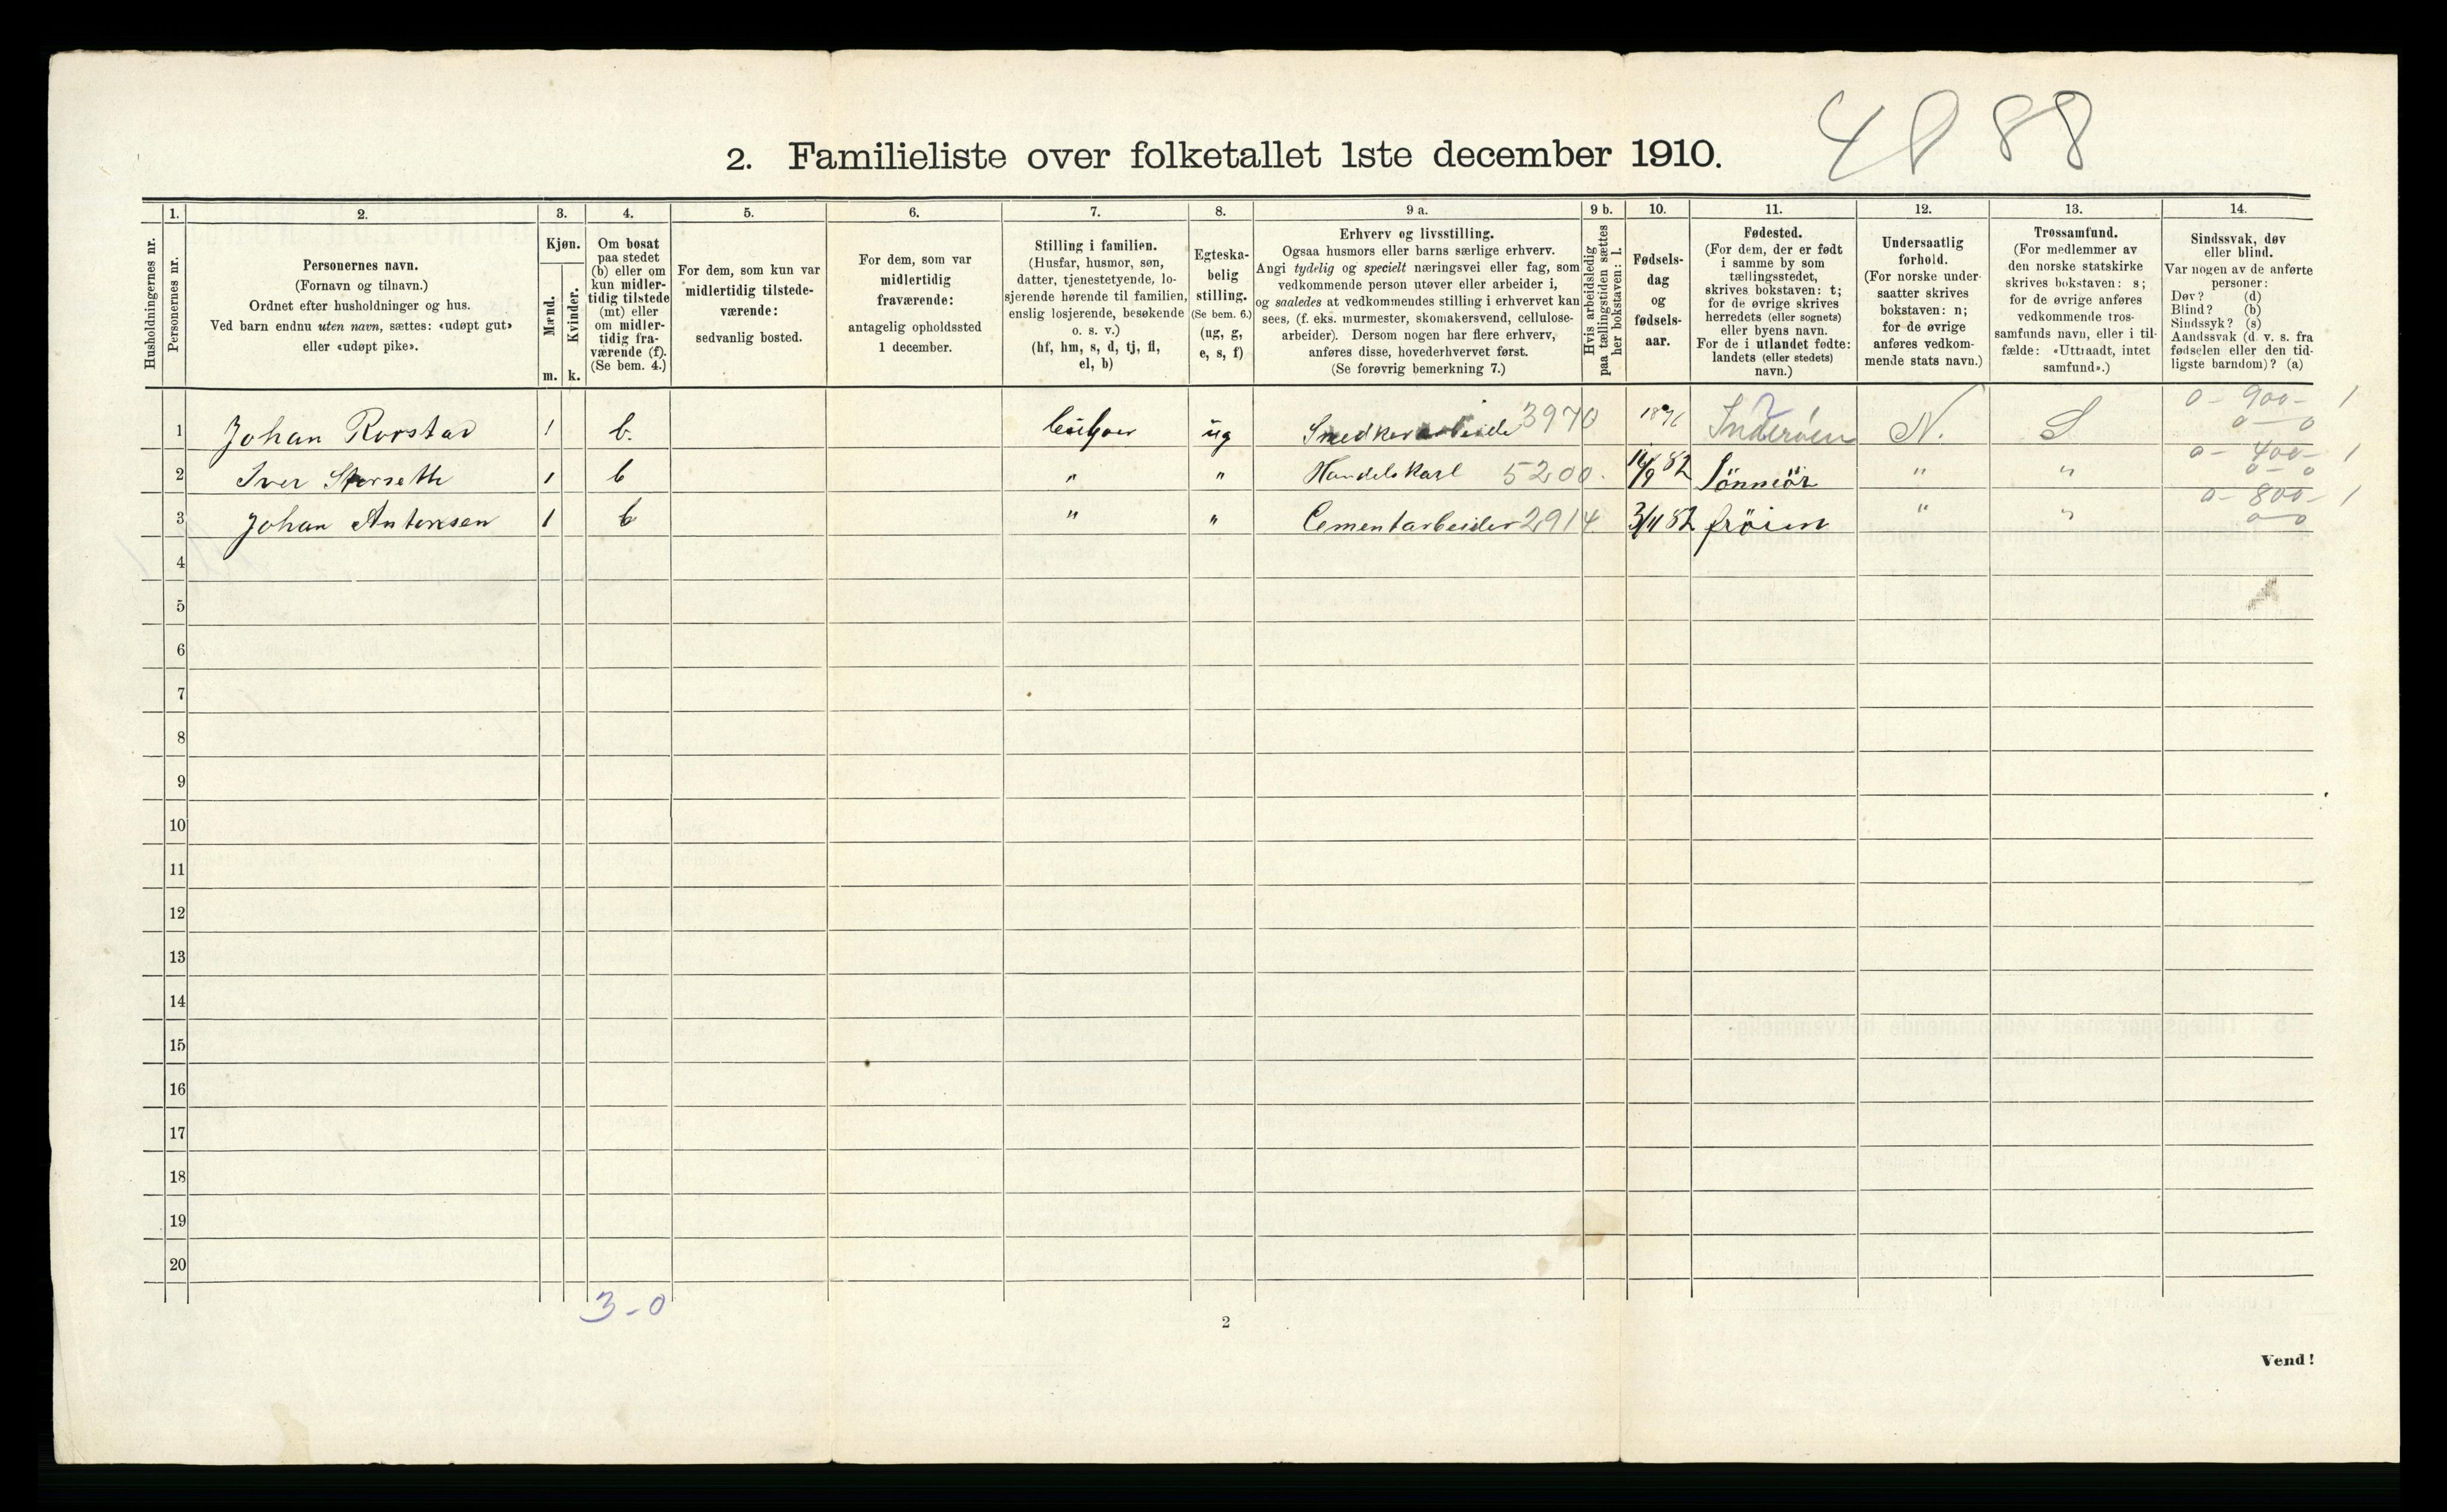 4888
2. Familieliste over folketallet 1ste december 1910.
Husholdningernes nr.
1.
Personernes nr.
2.
Personernes navn.
(Fornavn og tilnavn.)
Ordnet efter husholdninger og hus.
Ved barn endnu uten navn, sættes: «udøpt gut»
eller «udøpt pike».
3.
Kjøn.
Mænd.
Kvinder.
m. k.
4.
Om bosat
paa stedet
(b) eller om
kun midler-
tidig tilstede
(mt) eller
om midler-
tidig fra-
værende (f).
(Se bem. 4.)
5.
For dem, som kun var
midlertidig tilstede-
værende:
sedvanlig bosted.
6.
For dem, som var
midlertidig
fraværende:
antagelig opholdssted
1 december.
7.
Stilling i familien.
(Husfar, husmor, søn,
datter, tjenestetyende, lo-
sjerende hørende til familien,
enslig losjerende, besøkende
o. s. v.)
(hf, hm, s, d, tj, fl,
el, b)
8.
Egteska-
belig
stilling.
(Se bem. 6.)
(ug, g,
e, s, f)
9 a.
Erhverv og livsstilling.
Ogsaa husmors eller barns særlige erhverv.
Angi tydelig og specielt næringsvei eller fag, som
vedkommende person utøver eller arbeider i,
og saaledes at vedkommendes stilling i erhvervet kan
sees, (f. eks. murmester, skomakersvend, cellulose-
arbeider). Dersom nogen har flere erhverv,
anføres disse, hovederhvervet først.
(Se forøvrig bemerkning 7.)
9 b.
Hvis arbeidsledig
paa tællingstiden sættes
her bokstaven: l.
10.
Fødsels-
dag
og
fødsels-
aar.
11.
Fødested.
(For dem, der er født
i samme by som
tællingsstedet,
skrives bokstaven: t;
for de øvrige skrives
herredets (eller sognets)
eller byens navn.
For de i utlandet fødte:
landets (eller stedets)
navn.)
12.
Undersaatlig
forhold.
(For norske under-
saatter skrives
bokstaven: n;
for de øvrige
anføres vedkom-
mende stats navn.)
13.
Trossamfund.
(For medlemmer av
den norske statskirke
skrives bokstaven: s;
for de øvrige anføres
vedkommende tros-
samfunds navn, eller i til-
fælde: «Uttraadt, intet
samfund».)
14.
Sindssvak, døv
eller blind.
Var nogen av de anførte
personer:
Døv? (d)
Blind? (b)
Sindssyk? (s)
Aandssvak (d. v. s. fra
fødselen eller den tid-
ligste barndom)? (a)
1 Johan Rorstad 1 b. ug 3970 Inderöen N. S 0 - 900 - 1
0 - 0
2 Iver Storseth 1 b " " Handelskarl 5200. 14/9 82 " " 0 - 400 - 1
0 - 0
3 Johan Antonsen 1 b " " Cementarbeider 2914 3/11 82 Fröien " " 0 - 800 - 1
0 - 0
4
5
6
7
8
9
10
11
12
13
14
15
16
17
18
19
20
3 - 0
2
Vend!